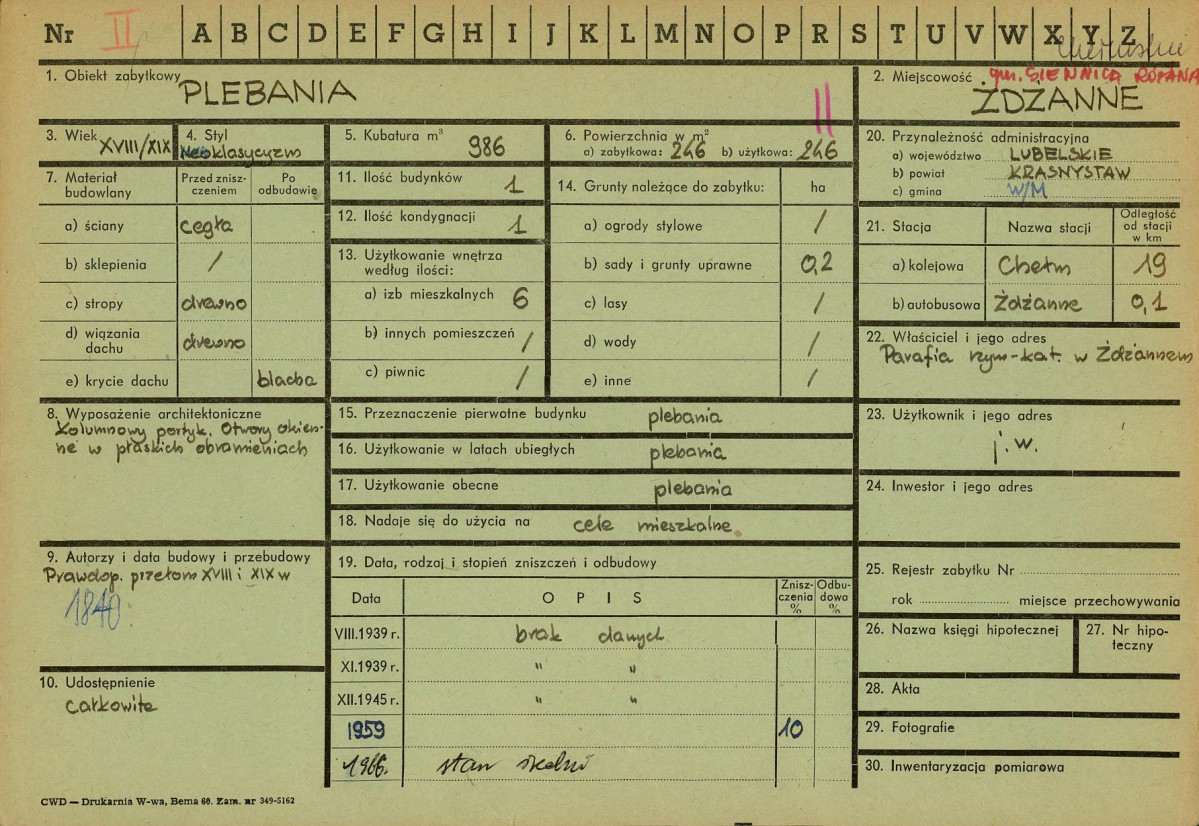 Nr II A B C D E F G H I J K L M N O P R S T U V W X Y Z
1. Obiekt zabytkowy
PLEBANIA
2. Miejscowość gm. SIENNICA RÓŻANA
ŻDŻANNE
3. Wiek
XVIII/XIX
4. Styl
Neoklasycyzm
5. Kubatura m³
986
6. Powierzchnia w m²
a) zabytkowa: 246 b) użytkowa: 246
II
7. Materiał budowlany
Przed zniszczeniem
Po odbudowie
a) ściany cegła
b) sklepienia /
c) stropy drewno
d) wiązania dachu drewno
e) krycie dachu blacha
8. Wyposażenie architektoniczne
Kolumnowy portyk. Otwory okien-
ne w płaskich obramieniach
9. Autorzy i data budowy i przebudowy
Prawdop. przełom XVIII i XIX w
1840.
10. Udostępnienie
całkowite
11. Ilość budynków 1
12. Ilość kondygnacji 1
13. Użytkowanie wnętrza
według ilości:
a) izb mieszkalnych 6
b) innych pomieszczeń /
c) piwnic /
14. Grunty należące do zabytku: ha
a) ogrody stylowe /
b) sady i grunty uprawne 0,2
c) lasy /
d) wody /
e) inne /
15. Przeznaczenie pierwotne budynku plebania
16. Użytkowanie w latach ubiegłych plebania
17. Użytkowanie obecne plebania
18. Nadaje się do użycia na cele mieszkalne.
19. Data, rodzaj i stopień zniszczeń i odbudowy
Data O P I S Zniszczenia % Odbudowa %
VIII.1939 r. brak danych
XI.1939 r. " "
XII.1945 r. " "
1959 10
1966. stan średni
20. Przynależność administracyjna
a) województwo LUBELSKIE
b) powiat KRASNYSTAW
c) gmina W/M
21. Stacja Nazwa stacji Odległość od stacji w km
a) kolejowa Chełm 19
b) autobusowa Żdżanne 0,1
22. Właściciel i jego adres
Parafia rzym-kat. w Żdżannem
23. Użytkownik i jego adres
j.w.
24. Inwestor i jego adres
25. Rejestr zabytku Nr
rok miejsce przechowywania
26. Nazwa księgi hipotecznej
27. Nr hipoteczny
28. Akta
29. Fotografie
30. Inwentaryzacja pomiarowa
CWD — Drukarnia W-wa, Bema 60. Zam. nr 349-5162